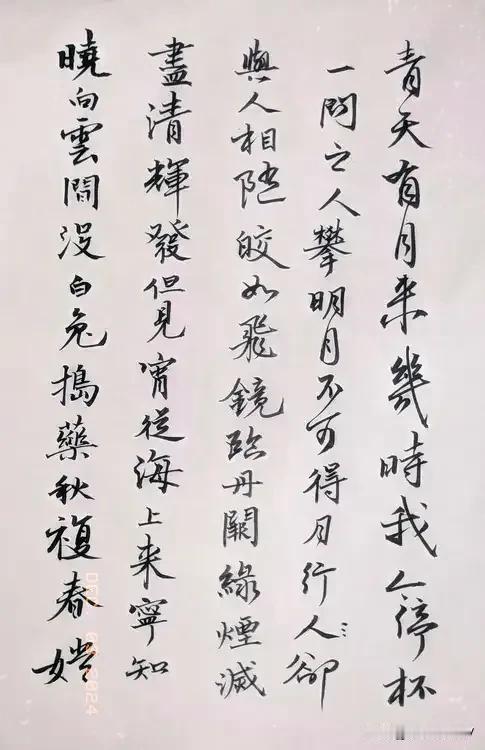 青天有月来幾時我今停杯
一問之人攀明月不可得月行人卻
與人相隨皎如飛鏡臨丹闕綠煙滅
盡清輝發但見宵從海上来寧知
曉向雲間没白兔搗藥秋複春嫦